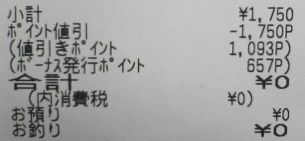 小計 ¥1,750
ﾎﾟｲﾝﾄ値引 -1,750P
(値引きﾎﾟｲﾝﾄ 1,093P)
(ﾎﾞｰﾅｽ発行ﾎﾟｲﾝﾄ 657P)
合計 ¥0
(内消費税 ¥0)
お預り ¥0
お釣り ¥0